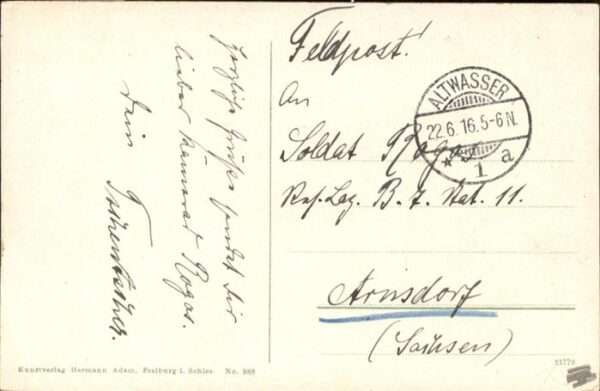 Herzliche Grüße sendet Dir
lieber Kamerad Rogas.
Dein
Feldpost!
An
Soldat Rogas
Res. Laz. B. 7. Stat. 11.
Arnsdorf
(Sachsen)
ALTWASSER
22.6.16.5-6N.
* 1 a
Kunstverlag Hermann Adam, Freiburg i. Schles. No. 988